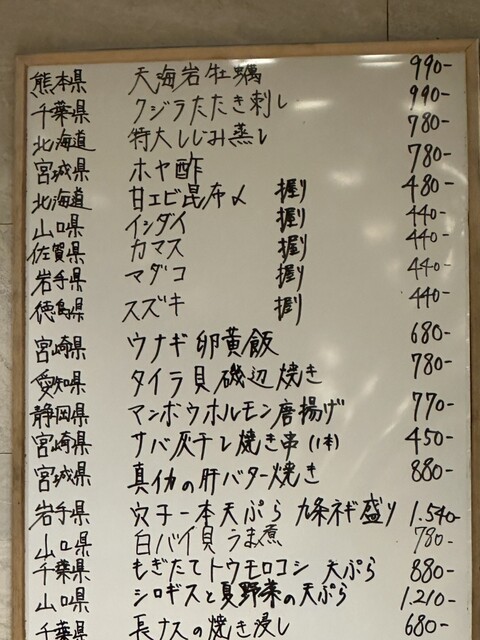 熊本県 天海岩牡蠣 990-
千葉県 クジラたたき刺し 990-
北海道 特大しじみ蒸し 780-
宮城県 ホヤ酢 780-
北海道 甘エビ昆布〆 握り 480-
山口県 イシダイ 握り 440-
佐賀県 カマス 握り 440-
岩手県 マダコ 握り 440-
徳島県 スズキ 握り 440-
宮崎県 ウナギ卵黄飯 680-
愛知県 タイラ貝磯辺焼き 780-
静岡県 マンボウホルモン唐揚げ 770-
宮崎県 サバ灰干し焼き串(1本) 450-
宮城県 真イカの肝バター焼き 880-
岩手県 穴子一本天ぷら 九条ネギ盛り 1.540-
山口県 白バイ貝うま煮 780-
千葉県 もぎたてトウモロコシ 天ぷら 880-
山口県 シロギスと夏野菜の天ぷら 1.210-
千葉県 長ナスの焼き浸し 680-